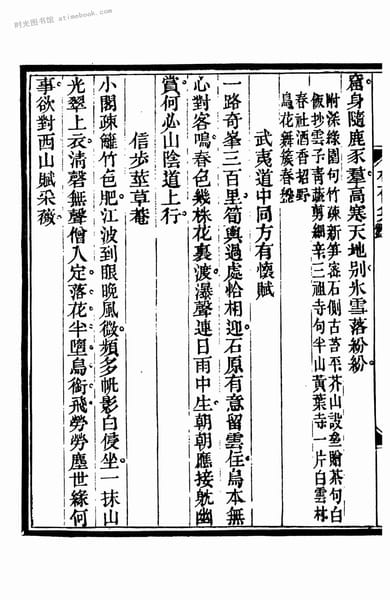 时光图书馆 atimebook.com
窟身隨鹿豕羣高寒天地別氷雪落紛紛
附深綠園句竹疎新笋密石側古苔平茶山設壘贈茶句白
飯抄雲子青蔬剪細辛三祖寺句半山黃葉寺一片白雲林
春社酒香招野
鳥花舞簇春
武夷道中同方有懷賦
一路奇峯三百里筍輿過處恰相迎石原有意留雲住鳥本無
心對客鳴春色幾株花裏渡瀑聲連日雨中生朝朝應接躭幽
賞何必山陰道上行
信步莖草菴
小閣疎籬竹色肥江波到眼晚風微頻多帆影白侵坐一抹山
光翠上衣清磬無聲僧入定落花半墮鳥銜飛勞勞塵世緣何
事欲對西山賦采薇